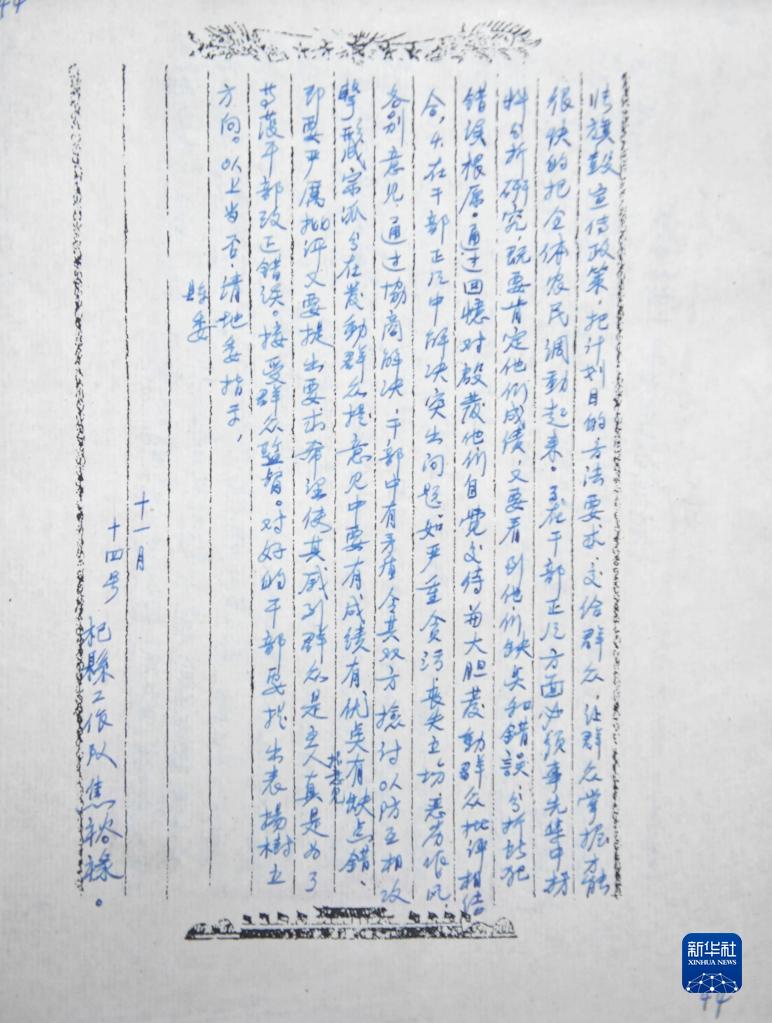 44
张旗鼓宣传政策，把计划目的方法要求，交给群众，让群众掌握，才能
很快的把全体农民调动起来。3，在干部正风方面必须事先集中材
料分析研究既要肯定他们成绩，又要看到他们缺点和錯誤，分析其犯
错误根原。通过回憶对啟發他们自覚交待，和大胆發動群众批评相结
合，4，在干部正风中解决突出问题，如严重贪污，丧失立场，恶劣作风，
各别意见通过協商解决，干部中有矛盾令其双方検讨以防互相攻
擊形成宗派，5，在發動群众提意见中要有成绩有，优点有缺点错，
即要严厲批评又要提出要求希望使其感到群众是主人真是为了
批意见
帮落干部改正错误。接受群众监督。对好的干部要提出表揚樹立
方向。以上当否，请地委指示，
县委
十一月
十四号 杞縣工作队焦裕禄。
新华社
XINHUA NEWS
44